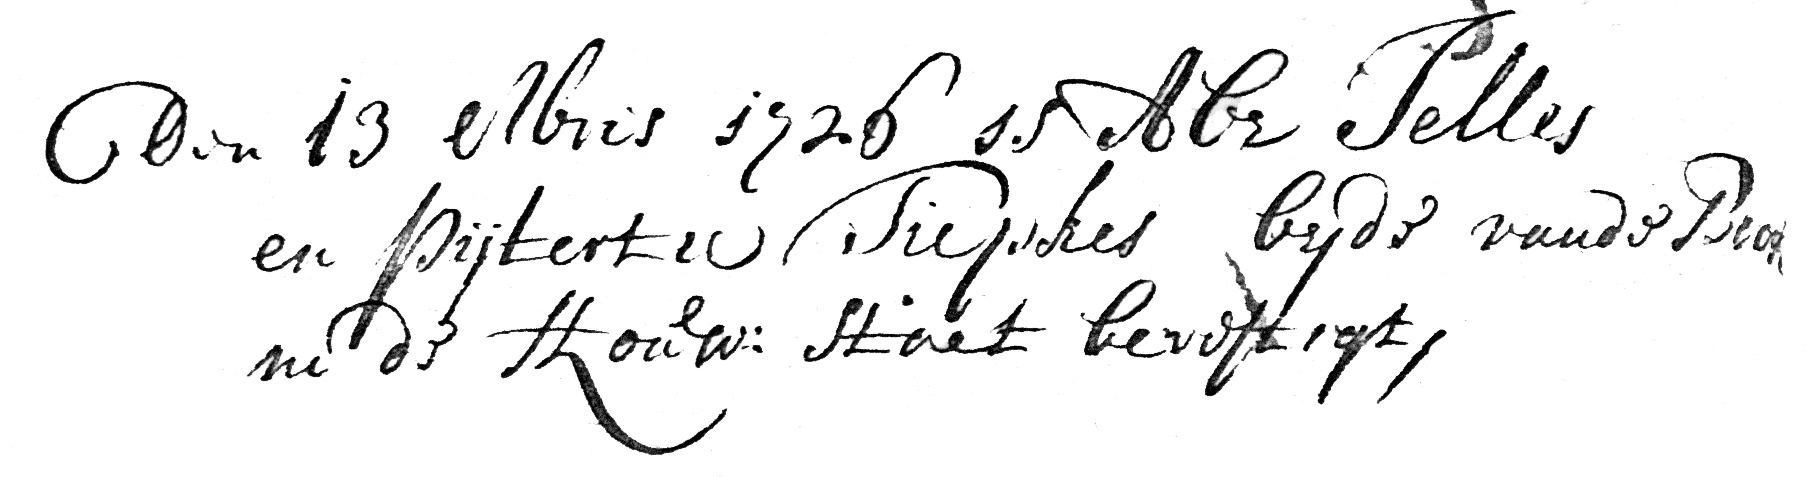 Den 13 Xbris 1726 is Abe Jelles
en Pijtertie Piepkes beyde vande
in de Houw: Staet bevestigt,